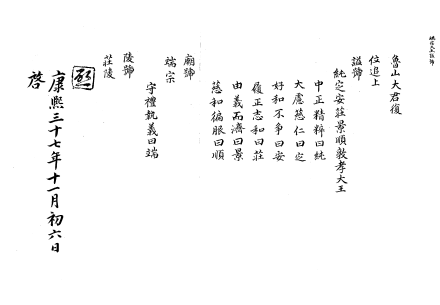 魯山大君復
位追上
謚號
純定安莊景順敦孝大王
中正精粹曰純
大慮慈仁曰定
好和不爭曰安
履正志和曰莊
由義而濟曰景
慈和徧服曰順
廟號
端宗
守禮執義曰端
陵號
莊陵
啓
康熙三十七年十一月初六日
啓